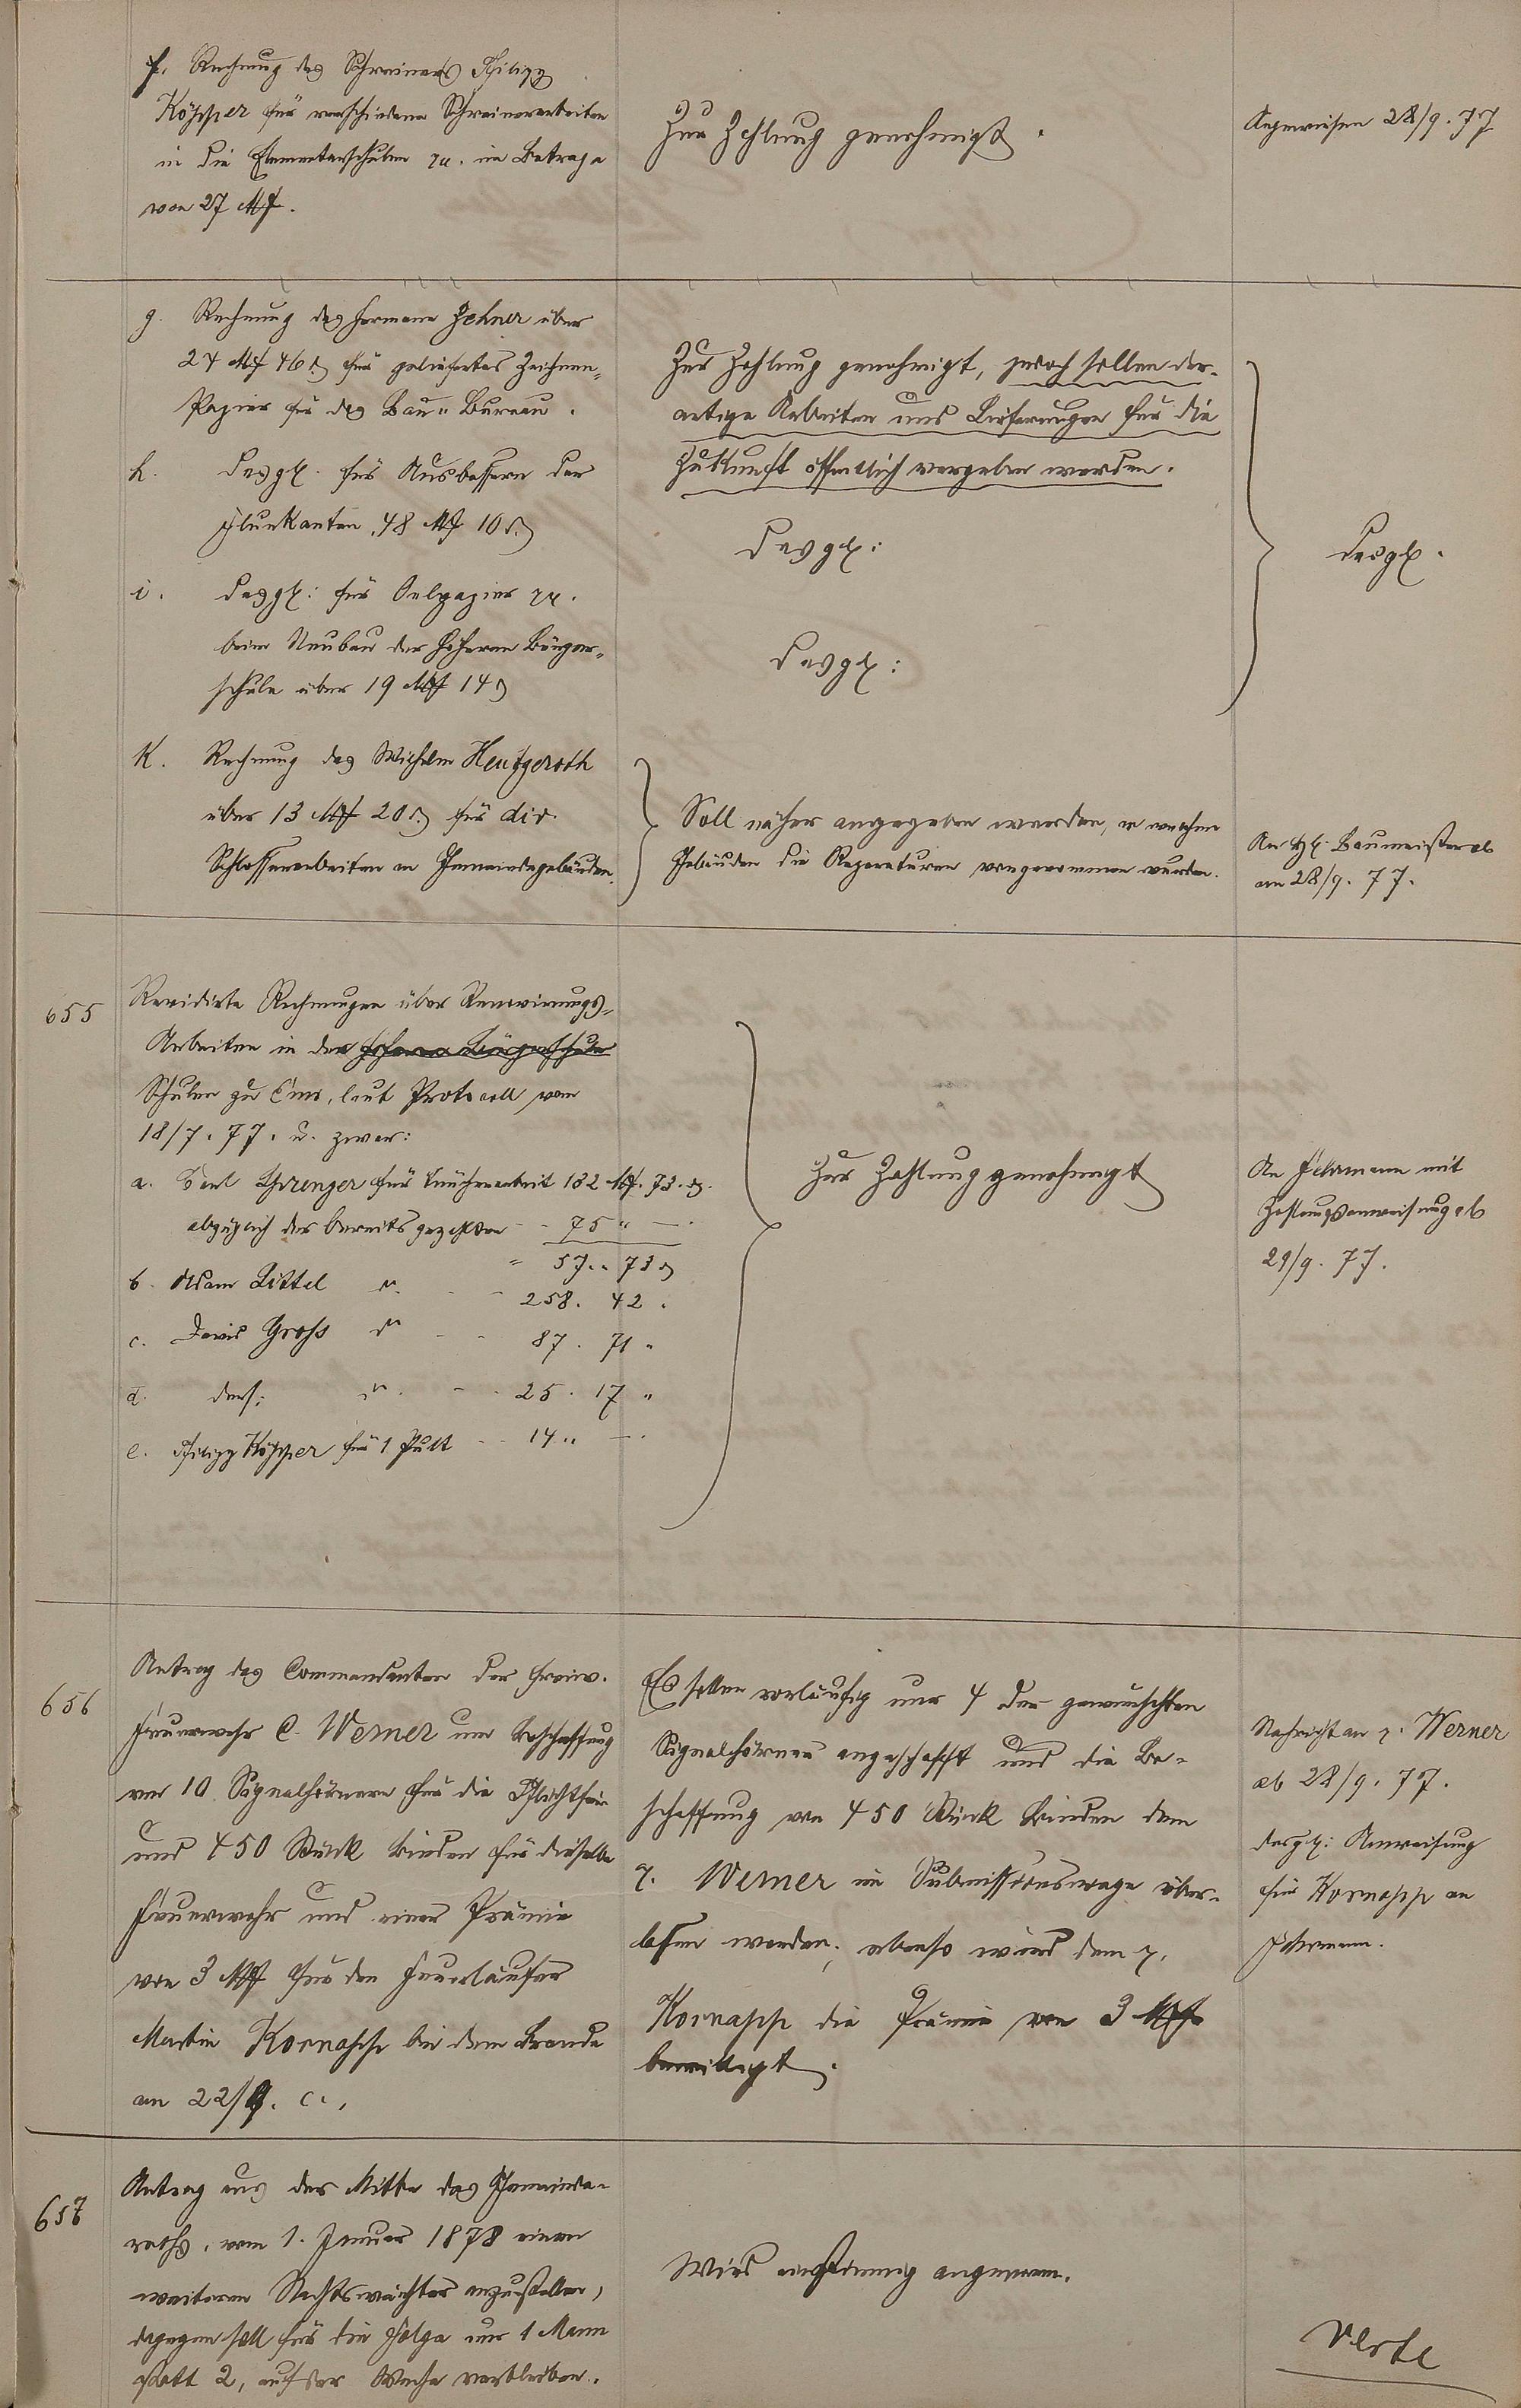 f. Rechnung des Schreiners Philipp
Köpper für verschiedene Schreinerarbeiten
in die Elementarschulen pp. im Betrage
von 27 Mk.
Zur Zahlung genehmigt.
Angewiesen 28/9. 77
g. Rechnung des Hermann Zehner über
24 Mk 46 d für geliefertes Zeichnen-
Papier für das Bau-Bureau.
Zur Zahlung genehmigt, jedoch sollen der-
artige Arbeiten und Lieferungen für die
Zukunft öffentlich vergeben werden.
h. Desgl. für Ausbessern der
48 Mk 10 d.
Desgl:
Desgl.
i. Desgl: für Oelpapier pp.
beim Neubau der höheren Bürger-
schule über 19 Mk 14 d
Desgl:
K. Rechnung des Wilhelm Heutzeroth
über 13 Mk 20 d. für div.
Schlosserarbeiten an Gemeindegebäuden.
Soll näher angegeben werden, an welchen
Gebäuden die Reparaturen vorgenommen wurden.
An H. Baumeister ab
am 28/9. 77.
655
Revidirte Rechnungen über Renovirungs-
Arbeiten in der höheren Bürgerschule
Schulen zu Ems, laut Protocoll vom
18/7. 77. u. zwar:
a. Carl Sprenger für Tüncherarbeit 132 Mk. 73. d.
abzüglich der bereits gezahlten - - 75 " —.
" 57. " 73 d
b. Adam Littel " - - 258. 42.
c. Davis Gross " - - 87. 71 "
d. ders: " - - 25. 17 "
e. Philipp Köpper für 1 Pult - - 14 " —.
Zur Zahlung genehmigt
An Jckermann mit
Zahlungsanweisung ab
29/9. 77.
656
Antrag des Commandanten der freiw.
Feuerwehr C. Werner um Beschaffung
von 10 Signalhörnern für die
und 450 Stück Binden für dieselbe
Feuerwehr und einer Prämie
von 3 Mk für den Feuerläufer
Martin Kornapp bei dem Brande
am 22/9. c.,
Es sollen vorläufig nur 4 der gewünschten
Signalhörner angeschafft und die Be-
schaffung von 450 Stück Binden dem
p. Werner im Submissionswege über-
lassen werden; ebenso wird dem p.
Kornapp die Prämie von 3 Mk
bewilligt.
Nachricht an p. Werner
ab 28/9. 77.
desgl: Anweisung
für Kornapp an
Jckermann.
657
Antrag aus der Mitte des Gemeinde-
raths, vom 1. Januar 1878 einen
weiteren Nachtswächter anzustellen,
dagegen soll für die Folge nur 1 Mann
statt 2, auf der Wache verbleiben.
Wird einstimmig angenomm.
Verte